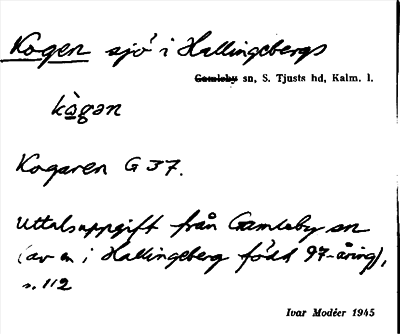 Kogen sjö i Hallingebergs
Gamleby sn, S. Tjusts hd, Kalm. l.
kògan
Kogaren G 37.
Uttalsuppgift från Gamleby sn
(av en i Hallingeberg född 97-åring),
s. 112
Ivar Modéer 1945